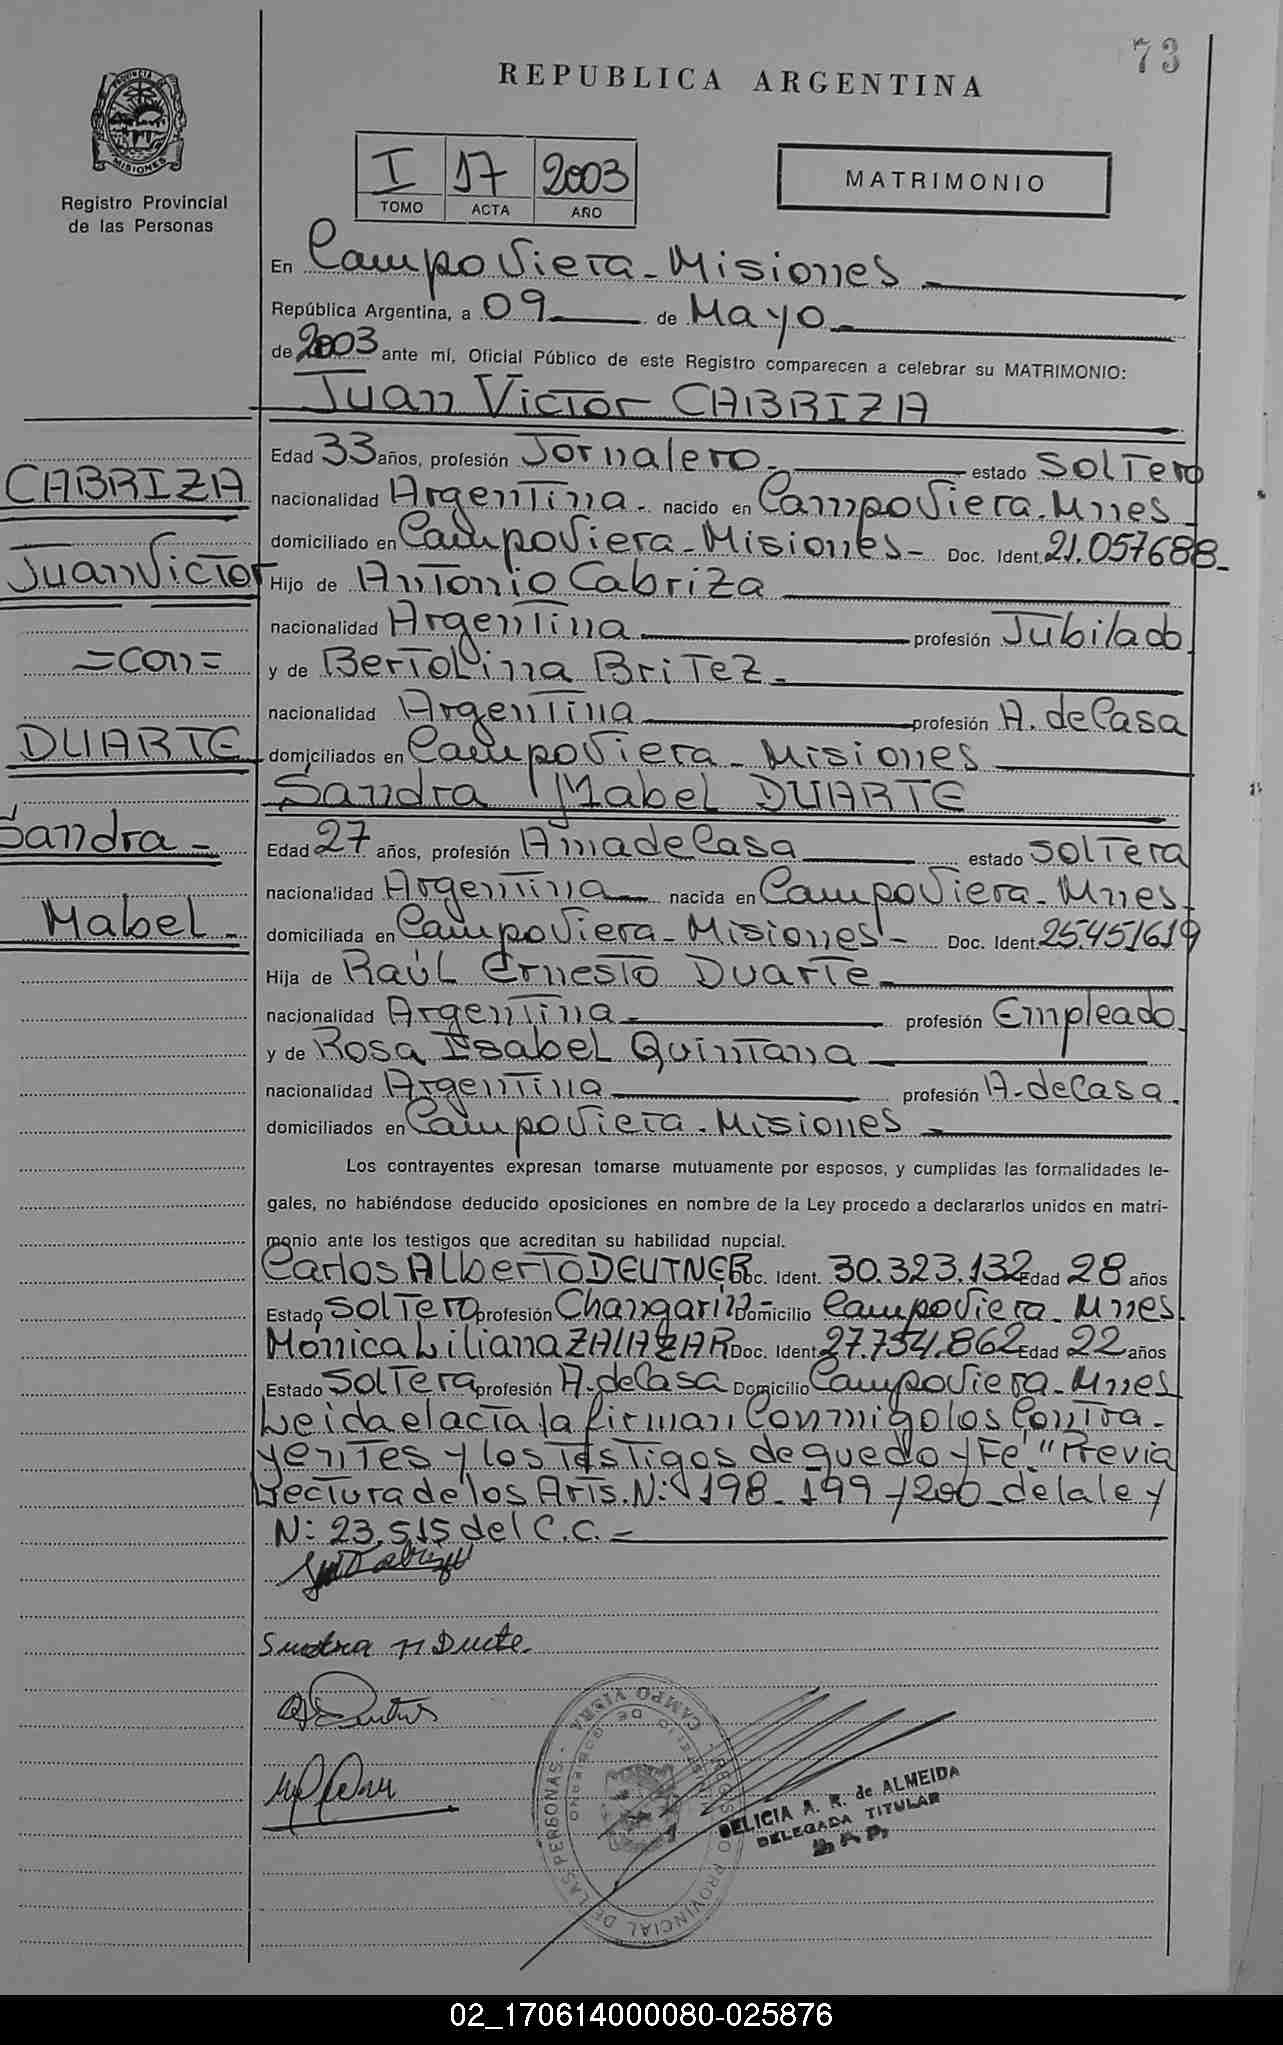 73
REPUBLICA ARGENTINA
PROVINCIA DE
MISIONES
Registro Provincial
de las Personas
I 17 2003
TOMO ACTA AÑO
MATRIMONIO
En Campo Viera - Misiones
República Argentina, a 09 de Mayo
de 2003 ante mí, Oficial Público de este Registro comparecen a celebrar su MATRIMONIO:
Juan Victor CABRIZA
Edad 33 años, profesión Jornalero - estado Soltero
CABRIZA
nacionalidad Argentina - nacido en Campo Viera - Mnes -
domiciliado en Campo Viera - Misiones - Doc. Ident. 21.057688 -
Juan Victor
Hijo de Antonio Cabriza
nacionalidad Argentina profesión Jubilado
=con=
y de Bertolina Britez -
nacionalidad Argentina profesión A. de Casa
DUARTE
domiciliados en Campo Viera - Misiones
Sandra Mabel DUARTE
Sandra -
Edad 27 años, profesión Ama de Casa estado Soltera
nacionalidad Argentina nacida en Campo Viera - Mnes -
Mabel -
domiciliada en Campo Viera - Misiones - Doc. Ident. 25.451619
Hija de Raúl Ernesto Duarte -
nacionalidad Argentina - profesión Empleado
y de Rosa Isabel Quintana
nacionalidad Argentina profesión A. de Casa.
domiciliados en Campo Viera - Misiones -
Los contrayentes expresan tomarse mutuamente por esposos, y cumplidas las formalidades le-
gales, no habiéndose deducido oposiciones en nombre de la Ley procedo a declararlos unidos en matri-
monio ante los testigos que acreditan su habilidad nupcial.
Carlos Alberto DEUTNER Doc. Ident. 30.323.132 Edad 28 años
Estado Soltero profesión Changarin - Domicilio Campo Viera - Mnes.
Mónica Liliana ZALAZAR Doc. Ident. 27.754.862 Edad 22 años
Estado Soltera profesión A. de Casa Domicilio Campo Viera - Mnes
Leida el acta la firman Conmigo los Contra-
yentes y los Testigos de que doy Fe. "Previa
Lectura de los Arts. N: 198 - 199 y 200 - de la ley
N: 23.515 del C.C. -
REGISTRO PROVINCIAL DE LAS PERSONAS - CAMPO VIERA
MINISTERIO DE GOBIERNO
DELICIA A. R. de ALMEIDA
DELEGADA TITULAR
02_170614000080-025876